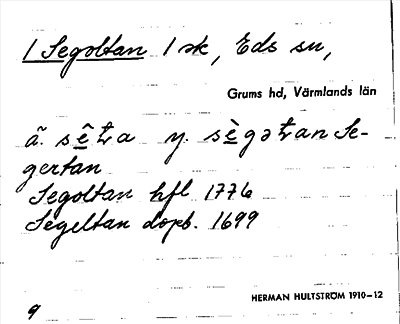 1 Segoltan 1 sk, Eds sn,
Grums hd, Värmlands län
ã. sê̱t̶a y. sè̱gət̶an Se-
gertan
Segoltan hfl 1776
Segeltan dopb. 1699
HERMAN HULTSTRÖM 1910–12
9